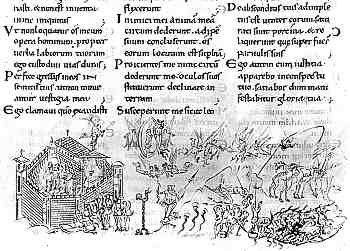 nasti. & non inuenta e in
me iniquitas
Ut non loquatur os meum
opera hominum, propter
uerba labiorum tuorum
ego custodiui uias duras;
Perfice gressus meos in
semitis tuis ut non moue
antur uestigia mea
Ego clamaui qm exaudisti
flixerunt
Inimici mei animā mea
circum dederunt. adipe
suum concluserunt. os
eorum locutum e superbia
Proicientes me nunc circum
dederunt me oculos suos
statuerunt declinare in
terram
Susceperunt me sicut leo
De absconditis tuis adimple
tus est uenter eorum. satu
rati sunt porcina. & re
liquerunt que super fuer
paruulis suis
Ego autem cum iustitia
apparebo in conspectu
tuo satiabor dum mani
festabitur gloria tua